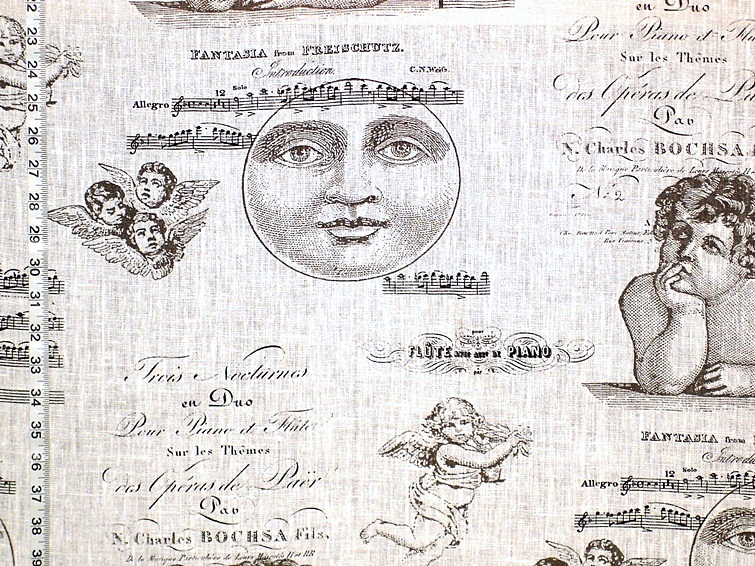 22
23
24
25
26
27
28
29
30
31
32
33
34
35
36
37
38
39
en Duo
Pour Piano et Flû
Sur les Thêmes
des Opéras de Pa
Par
N. Charles BOCHSA
De la Musique Particulière de Louis
No. 2
FANTASIA from FREISCHUTZ.
Introduction.
C.N. Weifs.
Allegro
12
Solo
pour
FLÛTE avec acct. DE PIANO
par
Trois Nocturnes
en Duo
Pour Piano et Flûte
Sur les Thêmes
des Opéras de Paër
Par
N. Charles BOCHSA Fils,
De la Musique Particulière de Louis
FANTASIA from
Introdu
Allegro
12
Solo